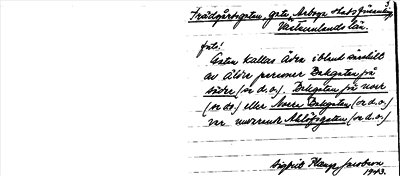 Trädgårdsgatan, gata, Arboga stadsförsamling
Västmanlands län.
fntr!
Gatan kallas även ibland särskilt
av äldre personer Bakgatan på
söder (se d.o.) Bakgatan på norr
(se do.) eller Norra Bakgatan (se d.o.)
var nuvarande Ahllöfsgatan (se d.o.)
Sigfrid Jacobson
1943.